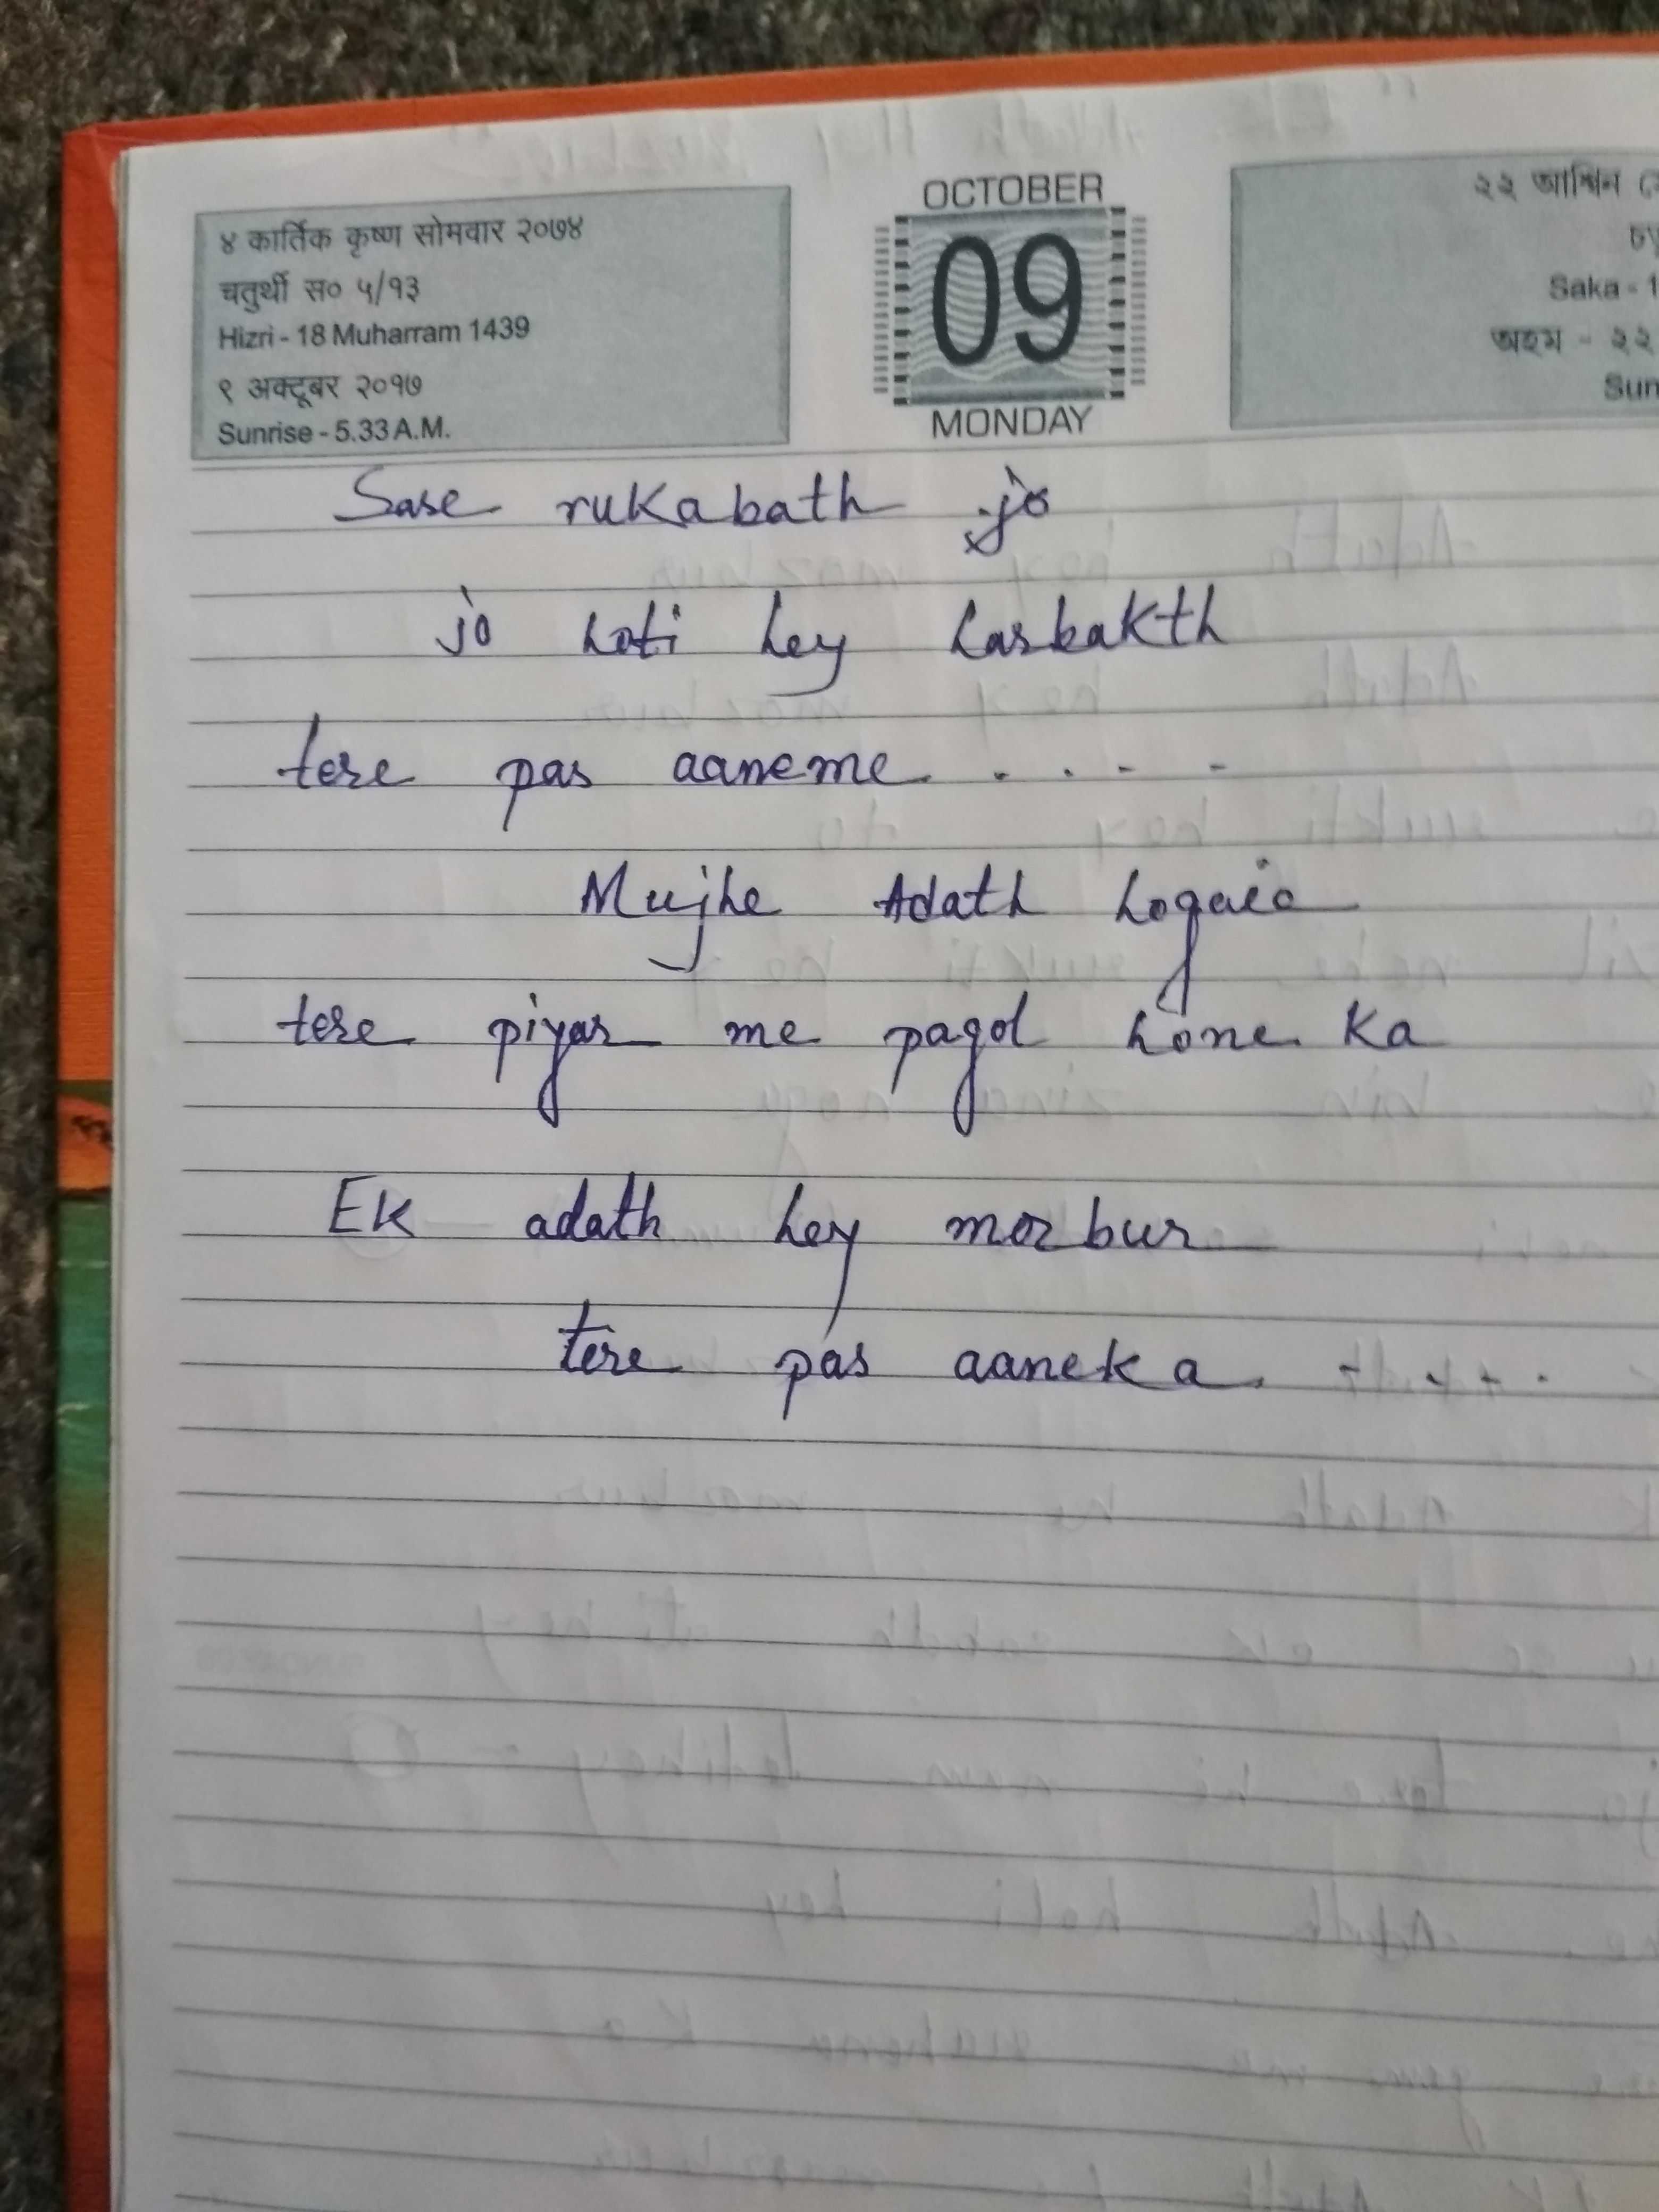 ४ कार्तिक कृष्ण सोमवार २०७४
चतुर्थी स० ५/१३
Hizri - 18 Muharram 1439
९ अक्टूबर २०१७
Sunrise - 5.33 A.M.
OCTOBER
09
MONDAY
২২ আশ্বিন
Saka - 1
অহম - ২২
Sun
Sase rukabath jo
jo hoti hey harbakth
tere pas aaneme. . . - -
Mujhe Adath hogaie
tere piyar me pagol hone ka
Ek adath hey mozbur
tere pas aaneka. - . . .